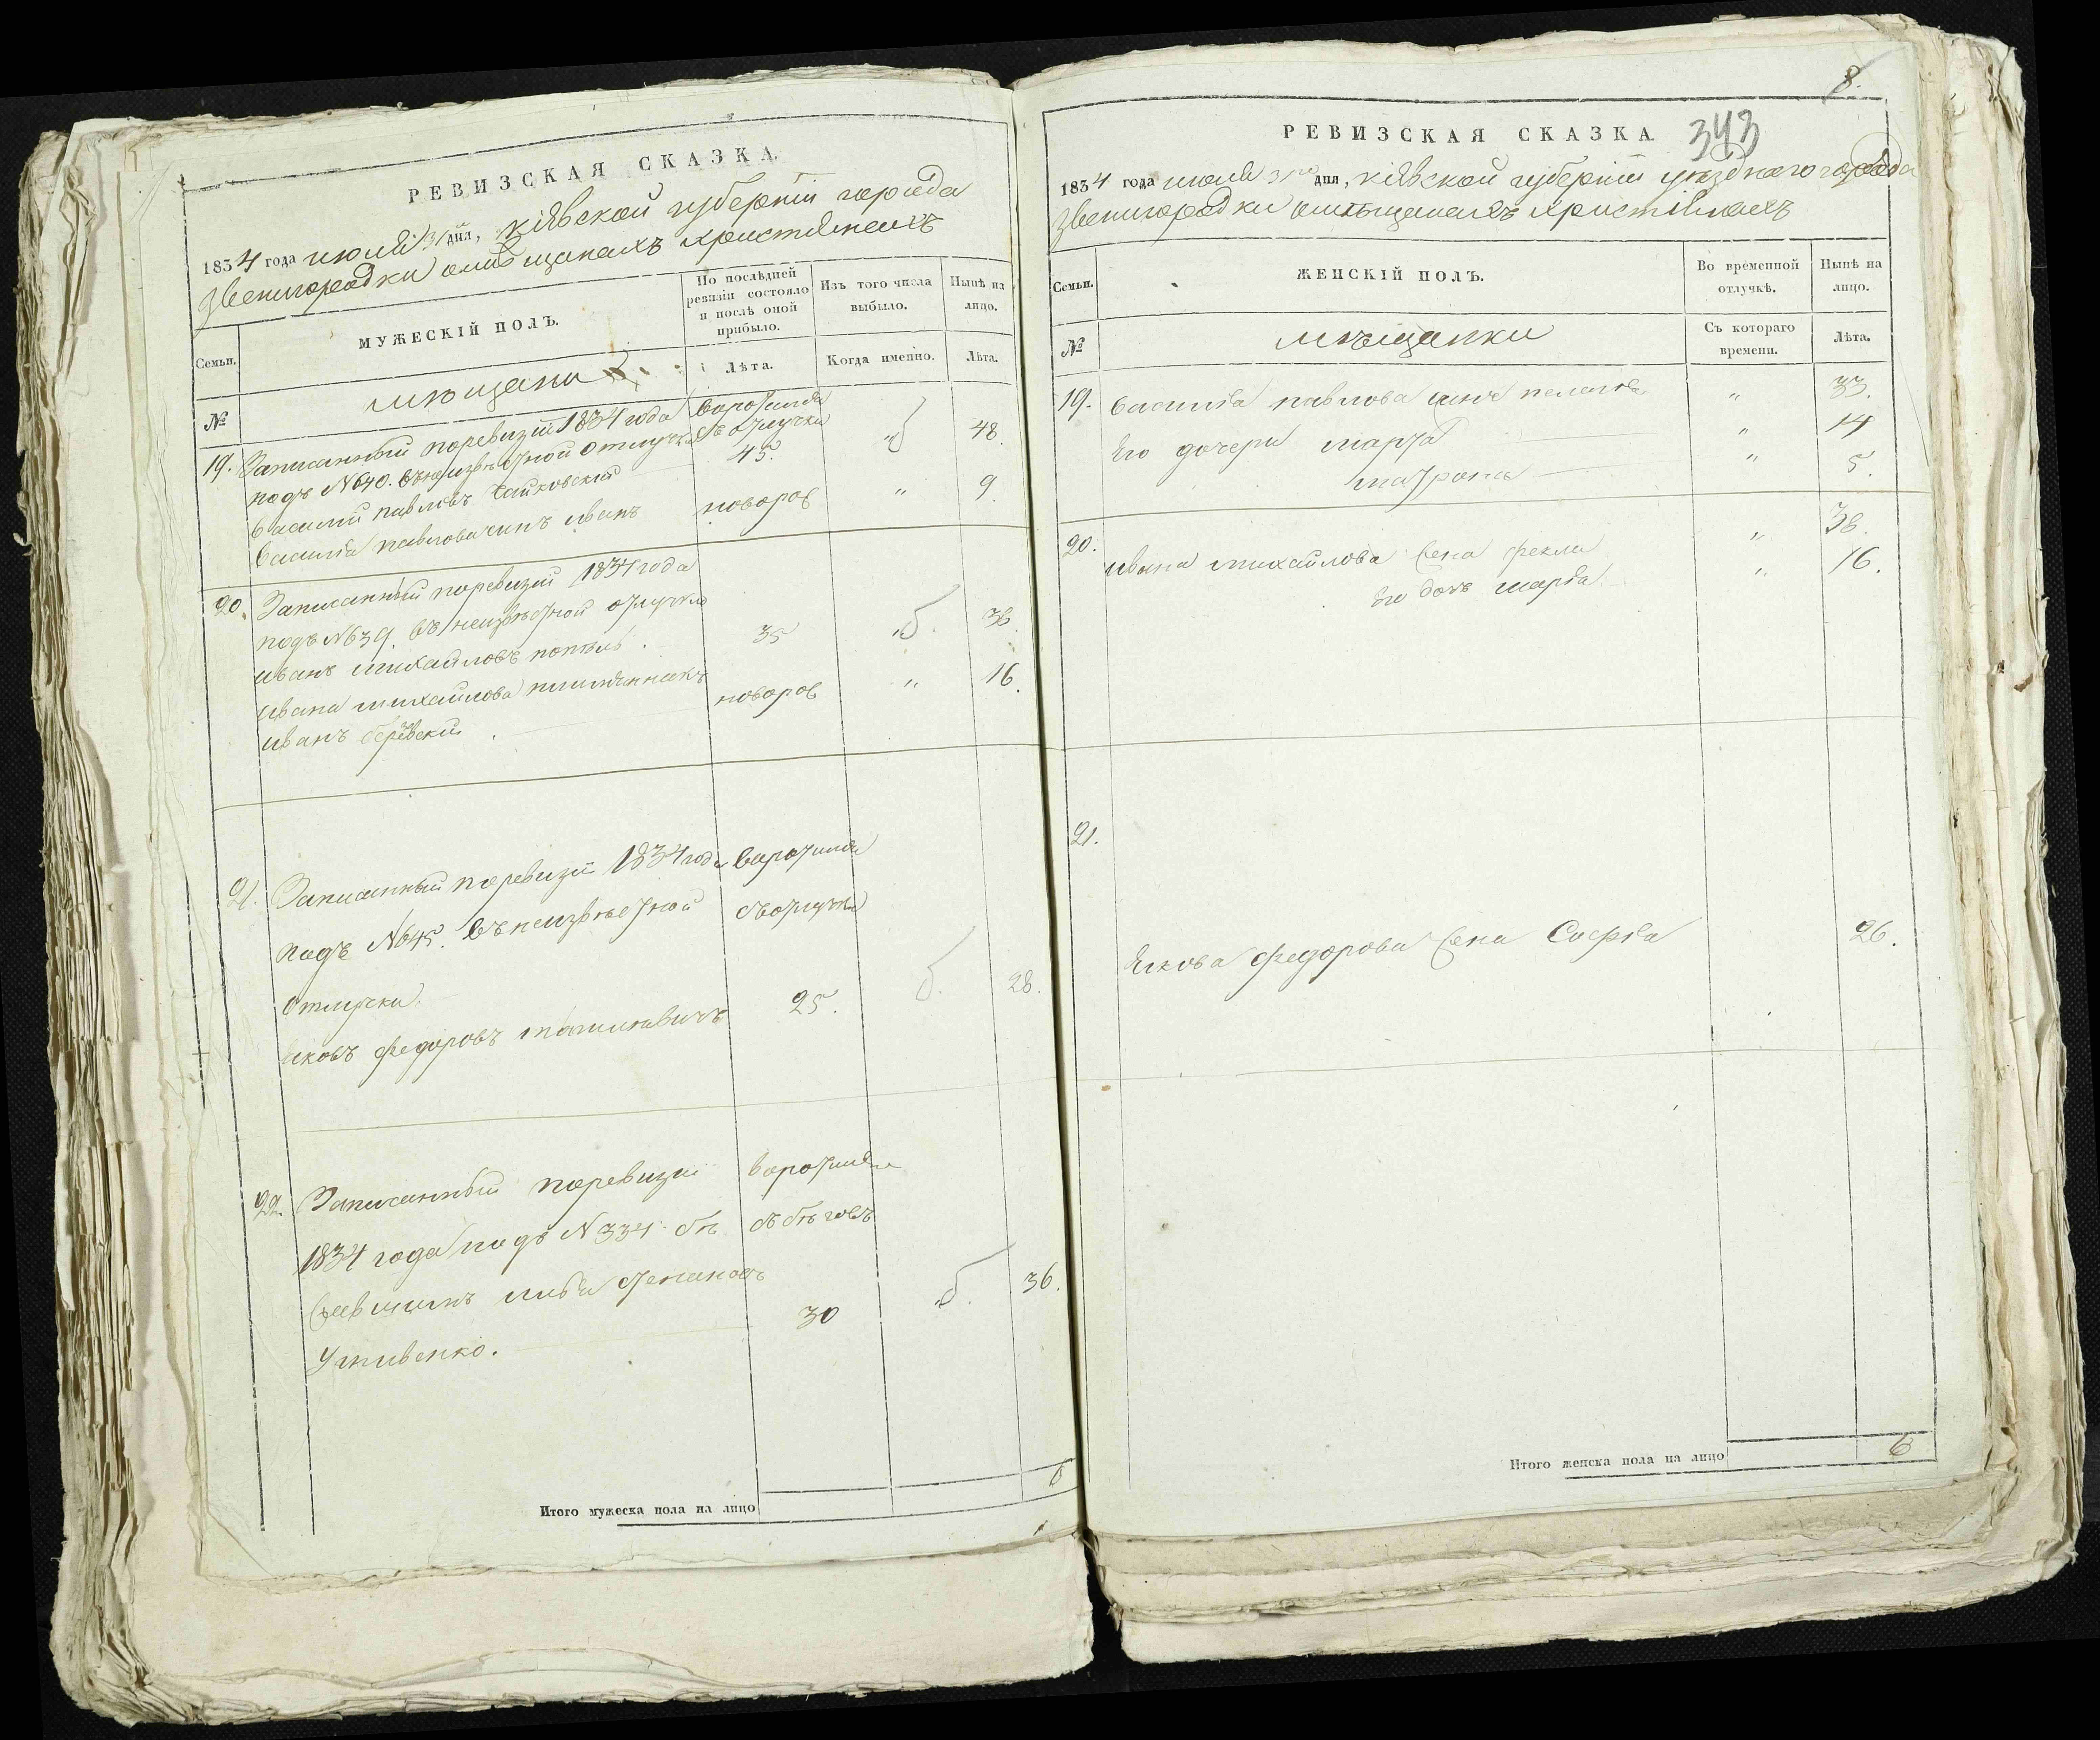 РЕВИЗСКАЯ СКАЗКА
1834 года июля 31 дня, кіевской губерніи города
звенигородки омѣщанахъ християнахъ
Семьи.
МУЖЕСКІЙ ПОЛЪ.
По послѣдней ревизіи состояло и послѣ оной прибыло.
Изъ того числа выбыло.
Нынѣ на лицо.
№
мѣщани
Лѣта.
Когда именно.
Лѣта.
19. Записанный поревизіи 1834 года
подъ №640. внеизвѣстной отлучки
василій павловъ
воротился
съ отлучки
45.
48.
василія павлова сынъ иванъ
новорож
"
9.
20. Записанный поревизіи 1834 года
подъ №639. въ неизвѣстной отлучки
иванъ михайловъ
35
36.
ивана михайлова племянникъ
иванъ
новорож
"
16.
21. Записанный поревизіи 1834 года
подъ №645. въ неизвѣстной
отлучки.
яковъ федоровъ
воротился
съотлучки
25.
28.
22. Записанный поревизіи
1834 года подъ №334
степановъ
воротился
съ бѣговъ
30
36.
Итого мужеска пола на лицо
6
8.
РЕВИЗСКАЯ СКАЗКА.
343
1834 года июля 31 дня, кіевской губерніи уѣздного города
звенигородки омѣщанахъ християнахъ
Семьи.
ЖЕНСКІЙ ПОЛЪ.
Во временной отлучкѣ.
Нынѣ на лицо.
№
мѣщанки
Съ котораго времени.
Лѣта.
19. василія павлова жена пелагея " 33.
Его дочери марѳа " 14
матрона " 5.
20. ивана михайлова жена фекла " 38.
Его дочь марія " 16.
21.
якова федорова жена Софія 26.
Итого женска пола на лицо
6